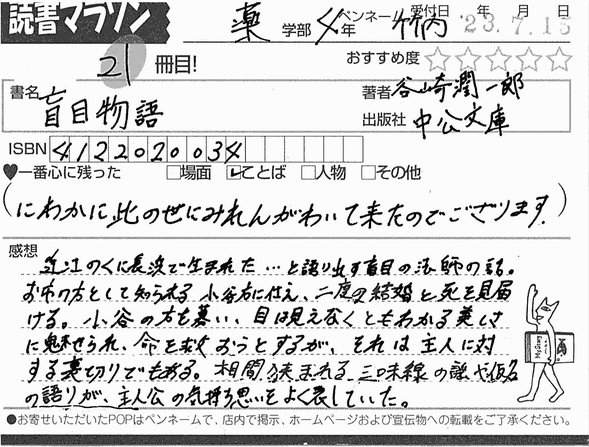 読書マラソン
薬 学部 4年 ペンネーム 竹内 受付日 年 月 日 '23.7.15
21 冊目! おすすめ度 ☆☆☆☆☆
書名 盲目物語 著者 谷崎潤一郎
出版社 中公文庫
ISBN 4122020034
♥一番心に残った □場面 ☑ことば □人物 □その他
(にわかに此の世にみれんがわいて来たのでござります。)
感想
近江のくに長浜で生まれた…と語り出す盲目の法師の話。
お市の方として知られる小谷方に仕え、二度の結婚と死を見届
ける。小谷の方を慕い、目は見えなくともわかる美しさ
に魅せられ、命を救おうとするが、それは主人に対
する裏切りでもある。相間挟まれる三味線の謡や仮名
の語りが、主人公の気持ち思いをよく表していた。
●お寄せいただいたPOPはペンネームで、店内で掲示、ホームページおよび宣伝物への転載をご了承ください。